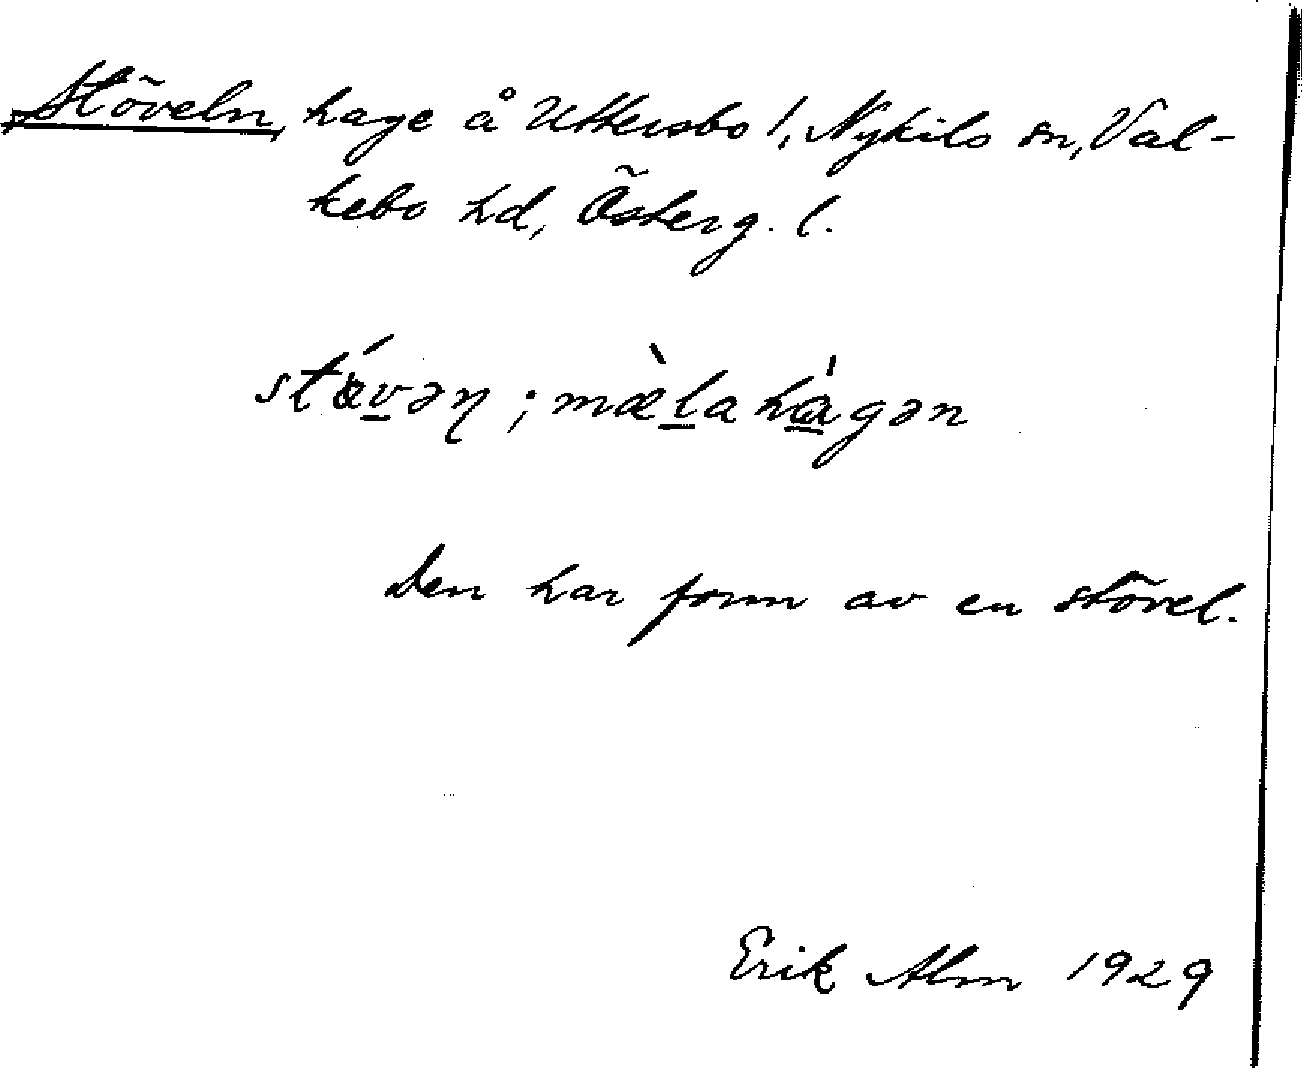 Stöveln, hage å Uttersbo 1, Nykils sn, Val-
kebo hd, Österg. l.
støvəɳ; mælahagən
Den har form av en stövel.
Erik Alm 1929